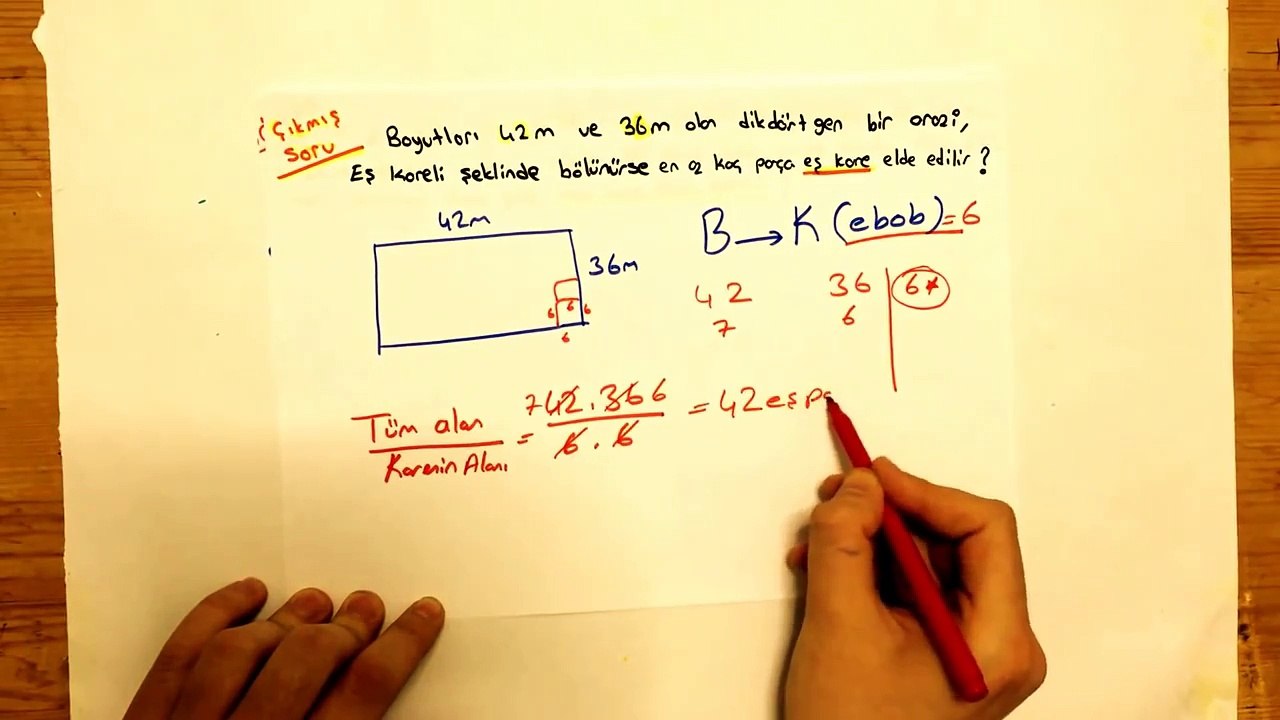 Çıkmış
Soru
Boyutları 42m ve 36m olan dikdörtgen bir arazi,
Eş kareli şeklinde bölünürse en az kaç parça eş kare elde edilir?
42m
36m
6 6 6
6
B → K (ebob) = 6
42 36 6*
7 6
Tüm alan / Karenin Alanı = 7 42 . 36 6 / 6 . 6 = 42 eş pa